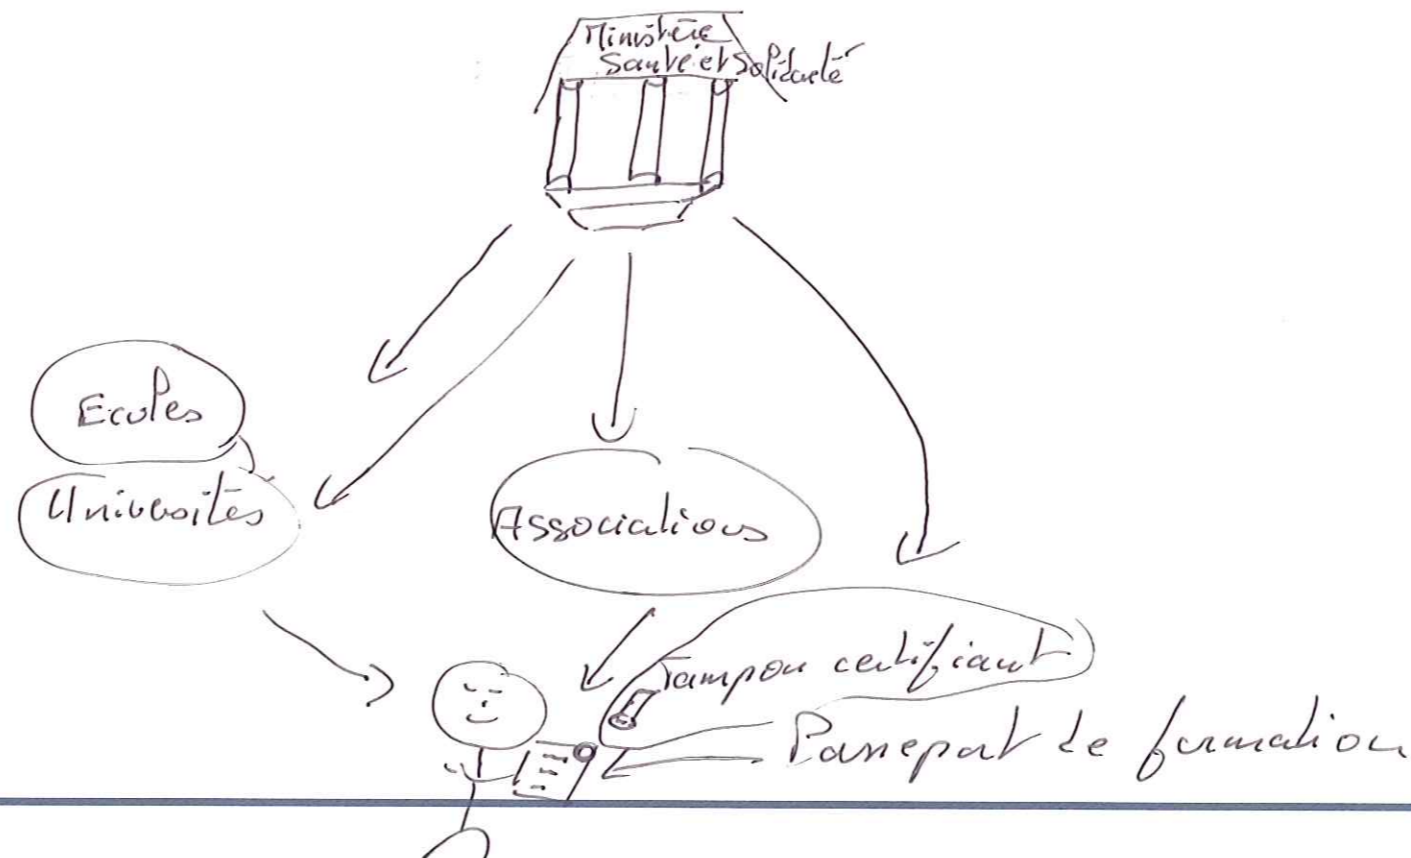 Ministère
Santé et Solidarité
Ecoles
Universités
Associations
Tampon certifiant
Passeport de formation